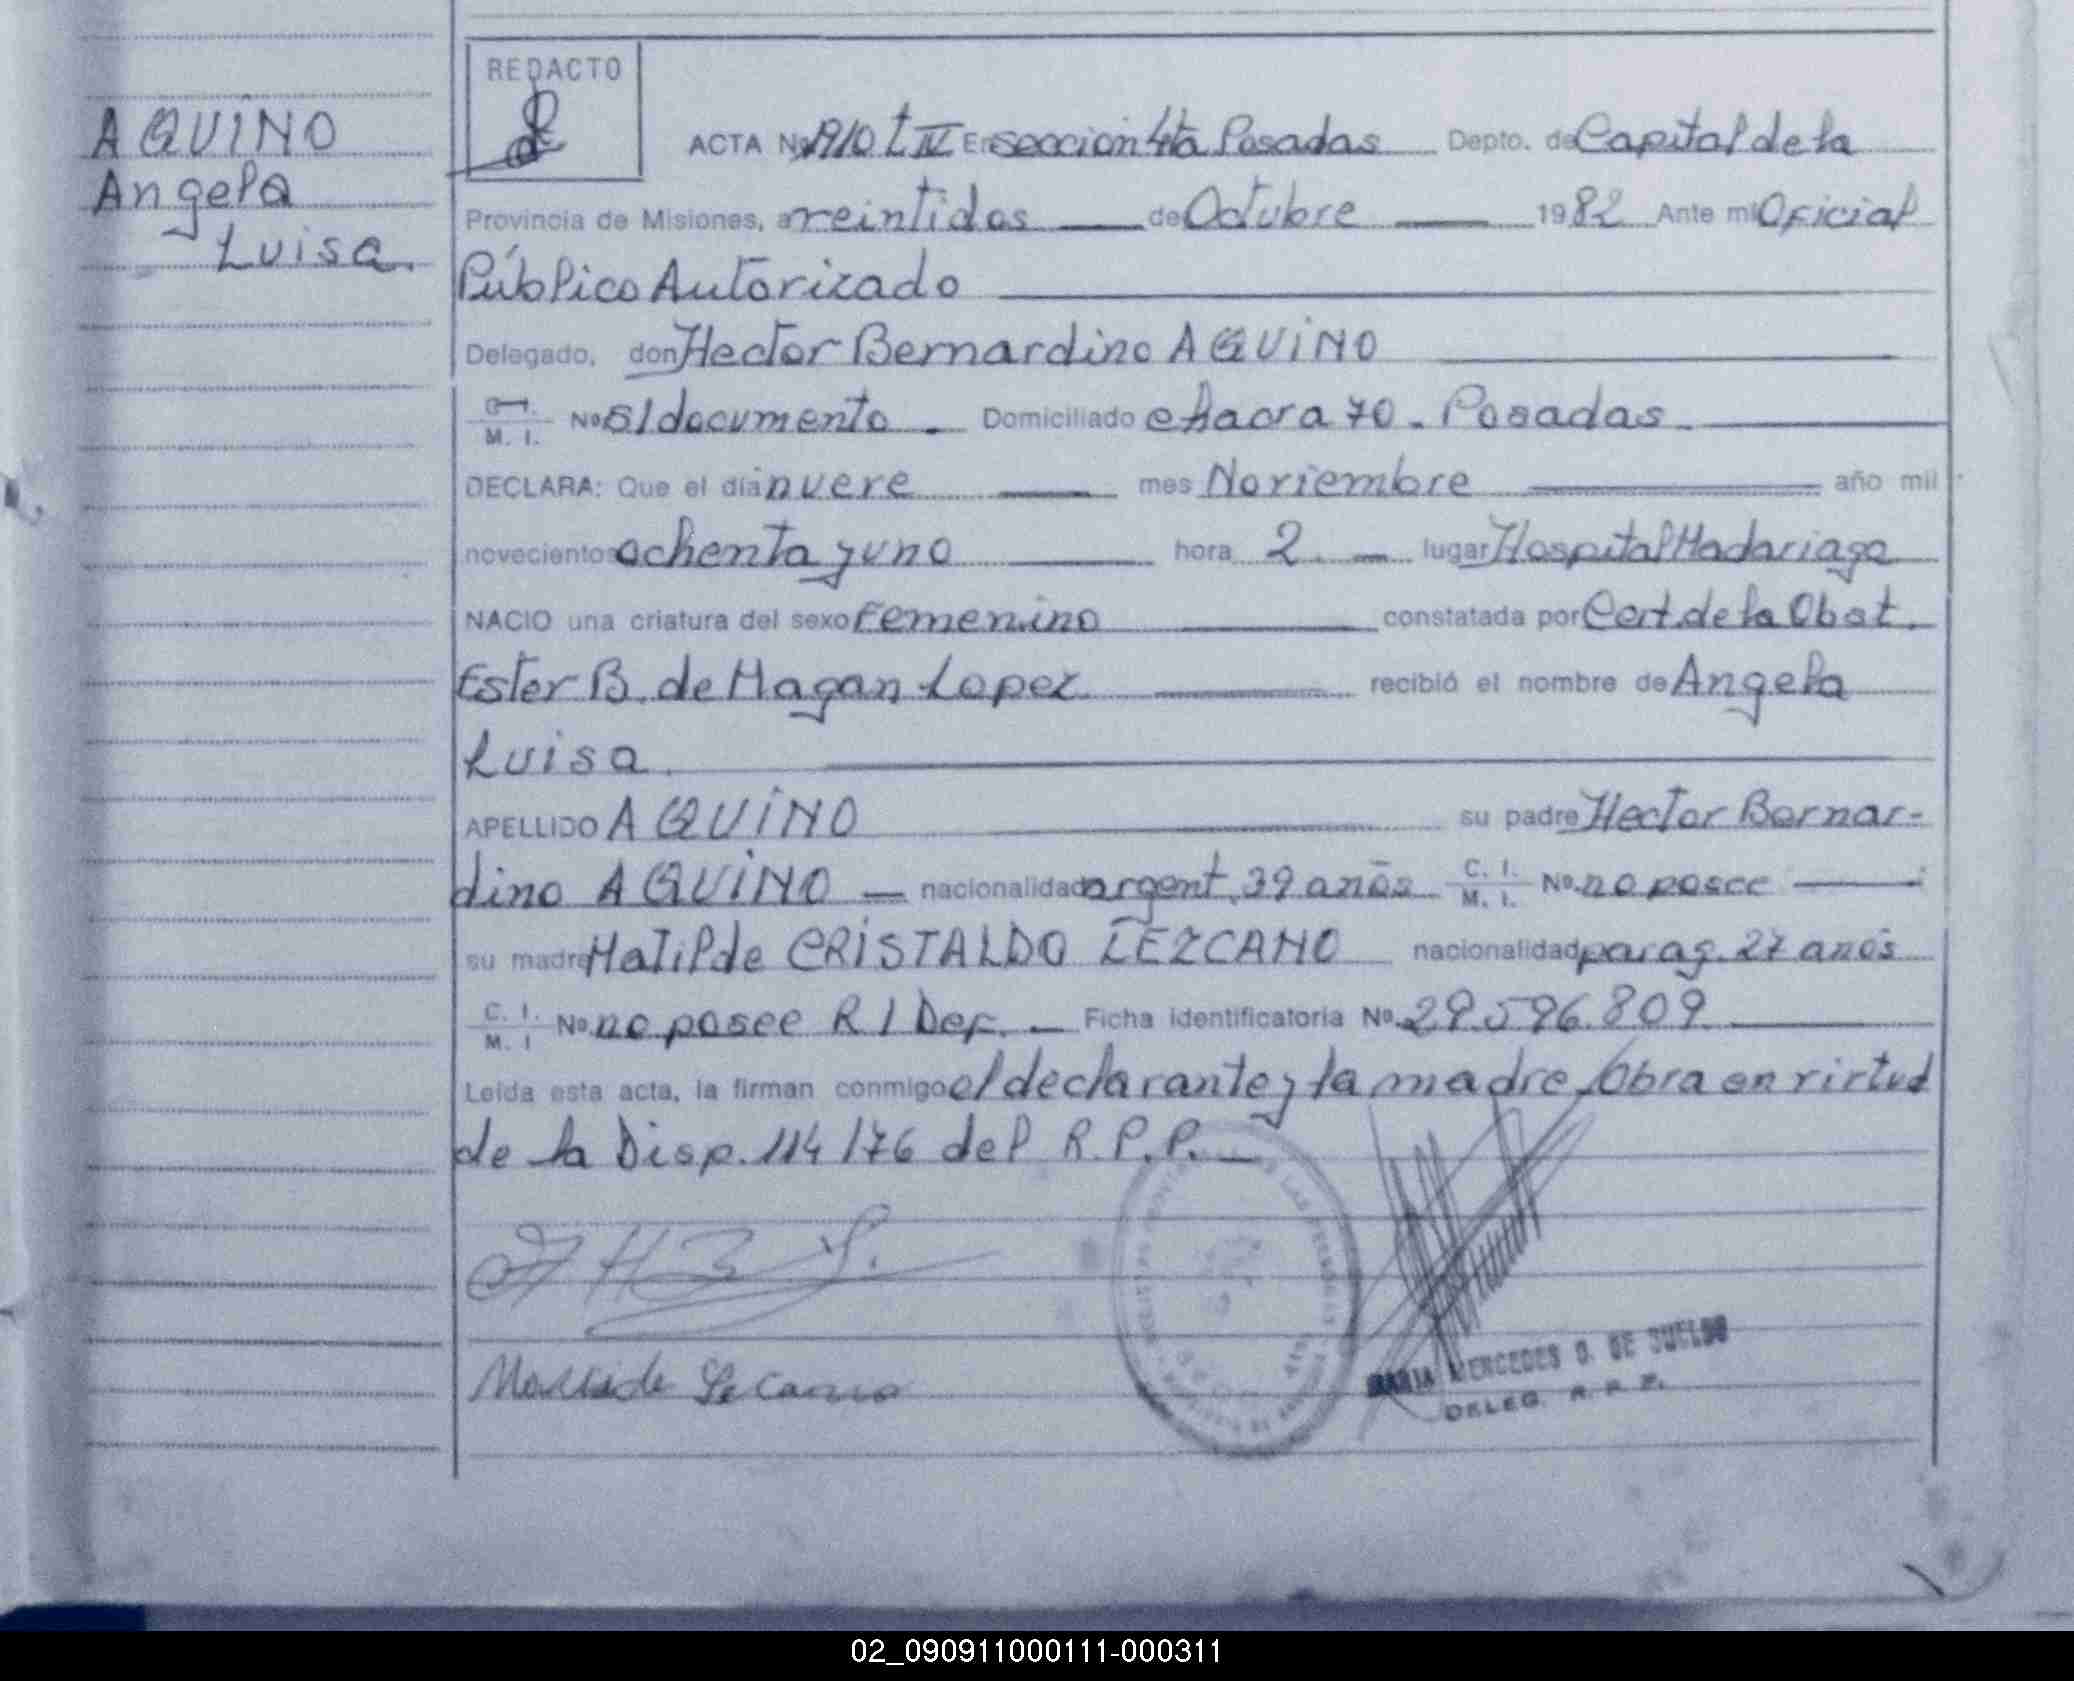 REDACTO
AQUINO
Angela
Luisa.
ACTA No 1910 t IV En seccion 4ta Posadas Depto. de Capital de la
Provincia de Misiones, a veintidos de Octubre 1982 Ante mi Oficial
Público Autorizado
Delegado, don Hector Bernardino AQUINO
C. I. M. I. No S/documento. Domiciliado chacra 70. Posadas.
DECLARA: Que el día nueve mes Noviembre año mil
novecientos ochenta y uno hora 2. lugar Hospital Madariaga
NACIO una criatura del sexo Femenino constatada por Cert. de la Obst.
Ester B. de Magan Lopez recibió el nombre de Angela
Luisa.
APELLIDO AQUINO su padre Hector Bernar-
dino AQUINO nacionalidad argent. 39 años C. I. M. I. No. no posee
su madre Matilde CRISTALDO LEZCANO nacionalidad parag. 27 años
C. I. M. I No. no posee R/Def. Ficha identificatoria No. 29.596.809.
Leída esta acta, la firman conmigo el declarante y la madre. Obra en virtud
de la Disp. 114/76 del R.P.P.
MARIA MERCEDES D. DE SUELDO
DELEG. R. P. P.
02_090911000111-000311